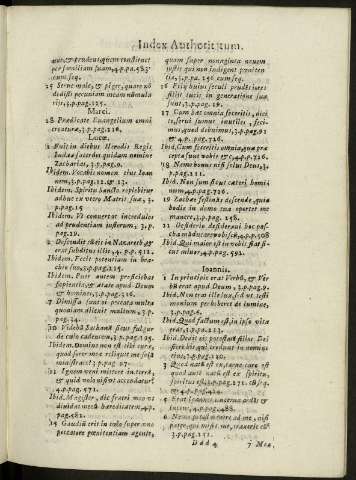 Index Authoritatum.
quis, & prudens, quem constituet
per familiam suam, 4.p.pa.583.
cum seq.
25 Serue male, & piger, quare nō
dedisti pecuniam meam nūmula
rijs, 3.p.pag.125.
Marci.
28 Prædicate Euangelium omni
creaturæ, 3.p.pag.128.
Lucæ.
1 Fuit in diebus Herodis Regis
Iudææ sacerdos quidam nomine
Zacharias, 3.p.pag.9.
Ibidem. Vocabis nomen eius Ioan
nem, 3.p.pag.12. & 13.
Ibidem. Spiritu sancto replebitur
adhuc ex vtero Matris suæ, 3.
p.pag.15
Ibidem. Vt conuertat incredulos
ad prudentiam iustorum, 3.p.
pag.19.
2 Descendit Iesus in Nazareth, &
erat subditus illis, 4.p.p.512.
Ibidem. Fecit potentiam in bra-
chio suo, 3.p.pag.125.
Ibidem. Puer autem proficiebat
sapientia, & ætate apud Deum
& homines, 3.p.pag.316.
7 Dimissa sunt ei peccata multa
quoniam dilexit multum, 3.p.
pag.34.
10 Videbā Sathanā sicut fulgur
de cælo cadentem, 3.p.pag.125.
Ibidem. Domine non est tibi curæ,
quod soror mea reliquit me solā
ministrare? 3.p.pag.27.
12 Ignem veni mittere in terrā,
& quid volo nisi vt accendatur?
4.p.pag.571.
Ibid. Magister, dic fratri meo vt
diuidat mecū hæreditatem, 4.p.
pag.582.
15 Gaudiū erit in cælo super vno
peccatore pœnitentiam agente,
quam super nonaginta nouem
iustis qui non indigent pœniten
tia, 3.p.pa.156 cum seq.
16 Filij huius seculi prudētiores
filijs lucis in generatione sua
sunt, 3.p.pag.19.
17 Cum hæc omnia feceritis, dici
te, serui sumus inutiles, feci-
mus quod debuimus, 3.p.pag.91
& 4.p.pag.726.
Ibid. Cum feceritis omnia, quæ præ
cepta sunt vobis &c, 4.p.p.726.
18 Nemo bonus nisi solus Deus, 3.
p.pag.211.
Ibid. Non sum sicut cæteri homi-
num, 4.p.pag.726.
19 Zachæe festinans descende, quia
hodie in domo tua oportet me
manere, 3.p.pag.158.
22 Desiderio desideraui hoc pas-
cha manducare vobiscū, 4.p.p.508
Ibid. Qui maior est in vobis fiat si-
cut minor, 4.p.pag.592.
Ioannis.
1 In principio erat Verbū, & Ver
bū erat apud Deum, 3.p.pag.9.
Ibid. Non erat ille lux, sed vt testi
monium perhiberet de lumine,
3.p.pag.6.
Ibid. Quod factum est, in ipso vita
erat, 3.p.pag.123.
Ibid. Dedit eis potestatē filios Dei
fieri, his qui credunt in nomine
eius, 3.p.pag.20.
3 Quod natū est ex carne, caro est
& quod natū est ex spiritu,
spiritus est,
& 4.p.pag.
5 Erat lucerna
lucens, 4.p.pag.488.
6 Nemo potest venire ad me, nisi
pater, qui misit me, traxerit eū
3.p.pag.151.
Ddd 4
7 Mea